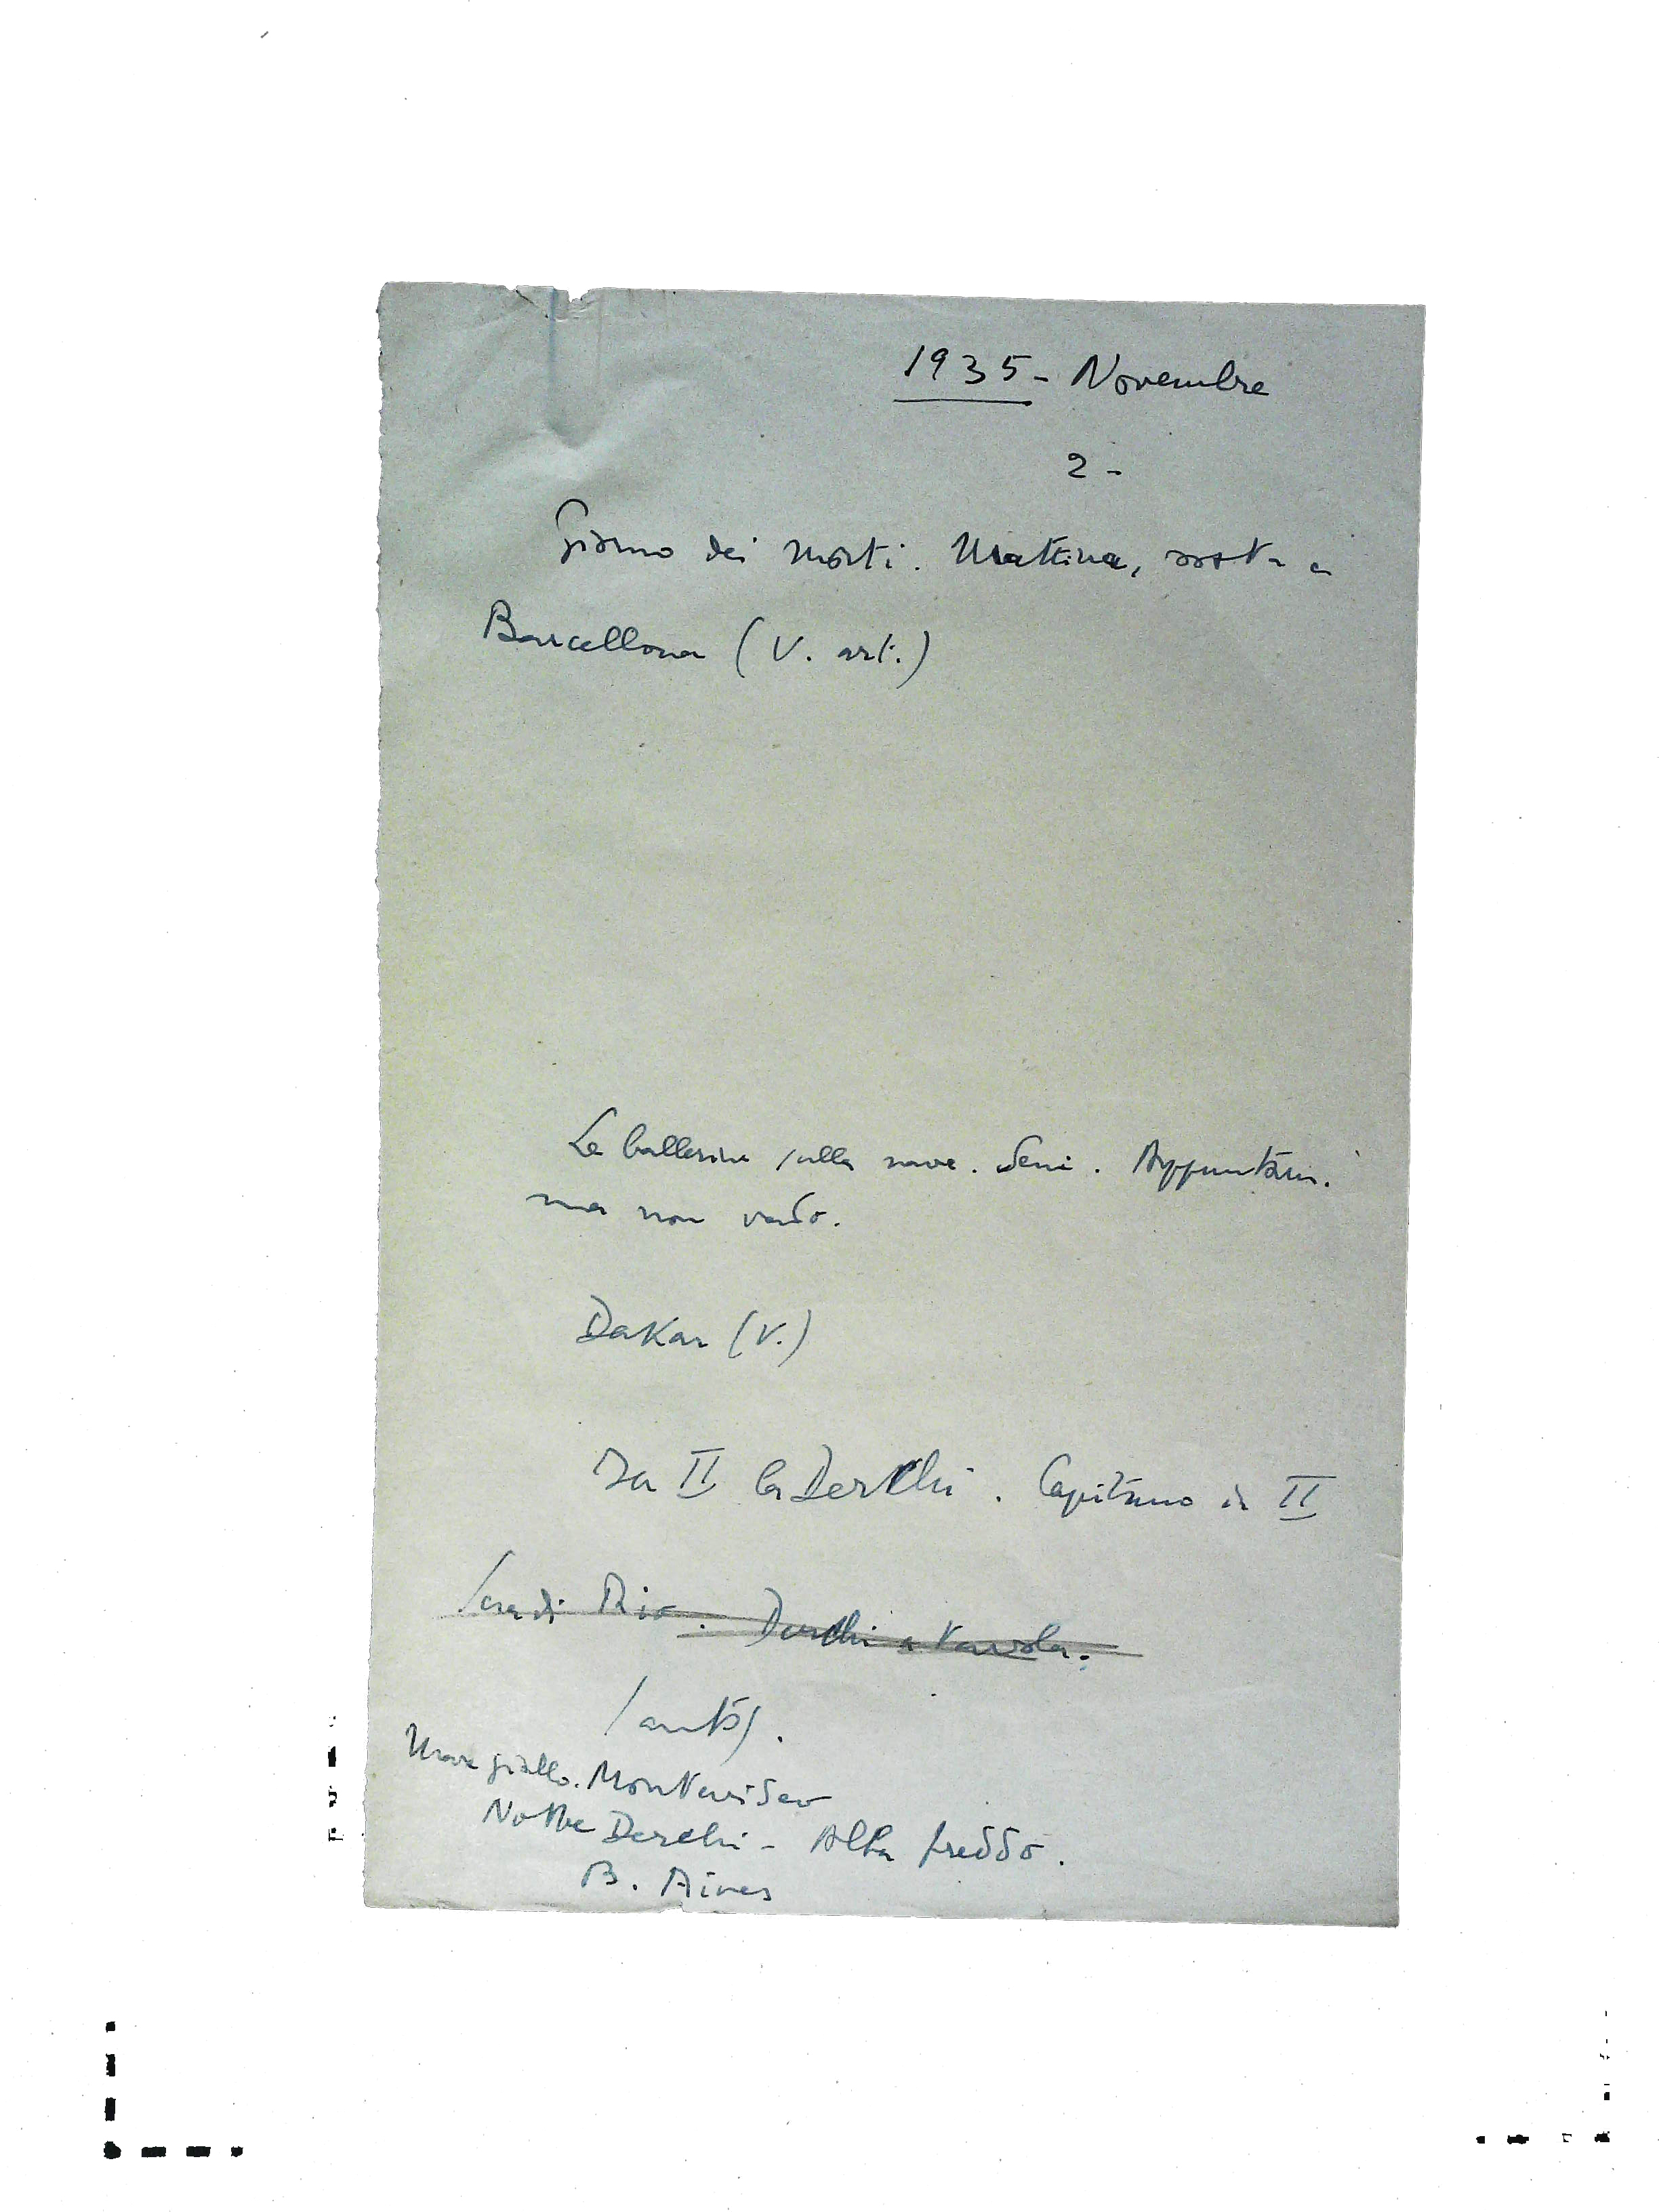 1935 - Novembre
2 -
Giorno dei Morti. Mattina, sosta a
Barcellona (V. art.)
Le ballerine sulla nave. Seni. Appuntam.
ma non vado.
Dakar (V.)
In II la Derchi. Capitano in II
Rio. Derchi a tavola.
Santos.
Mare giallo. Montevideo
Notte Derchi - Alba freddo.
B. Aires